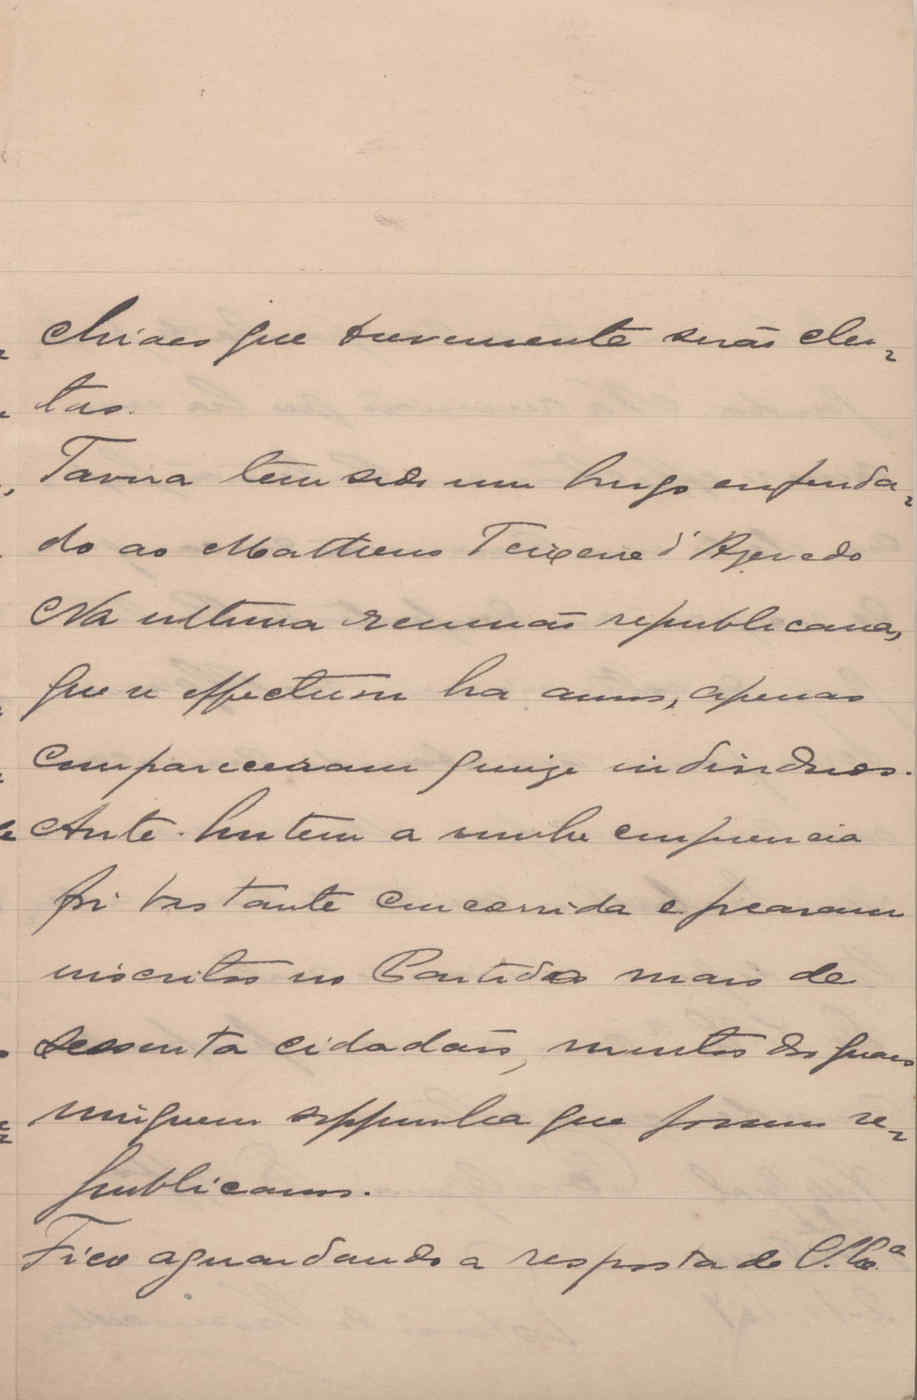 chiaes que brevemente serão elei-
tas.
Tavira tem sido um burgo enfeuda-
do ao Matheus Teixeira d'Azevedo
Na ultima reunião republicana,
que se effectuou ha annos, apenas
compareceram quinze individuos.
Ante-hontem a minha conferencia
foi bastante concorrida e ficaram
inscritos no Partido mais de
sessenta cidadãos, muitos dos quaes
ninguem suppunha que fossem re-
publicanos.
Fico aguardando a resposta de V. Ex.ª